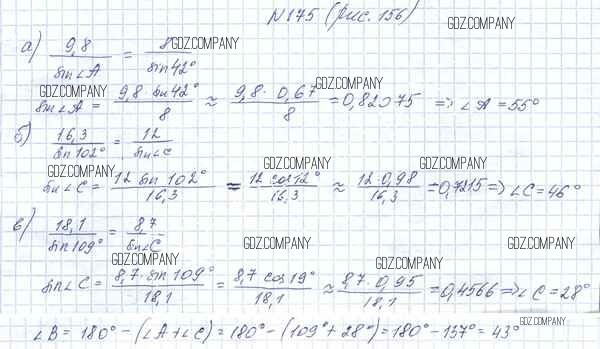 N175 (рис. 156)
GDZ.COMPANY
а) 9,8 / sin∠A = 8 / sin42°
GDZ.COMPANY
GDZ.COMPANY
GDZ.COMPANY
sin∠A = 9,8 · sin 42° / 8 ≈ 9,8 · 0,67 / 8 = 0,82075 => ∠A = 55°
б) 16,3 / sin102° = 12 / sin∠C
GDZ.COMPANY
GDZ.COMPANY
GDZ.COMPANY
sin∠C = 12 sin 102° / 16,3 = 12 cos12° / 16,3 ≈ 12 · 0,98 / 16,3 = 0,7215 => ∠C = 46°
в) 18,1 / sin109° = 8,7 / sin∠C
GDZ.COMPANY
GDZ.COMPANY
GDZ.COMPANY
GDZ.COMPANY
sin∠C = 8,7 · sin 109° / 18,1 = 8,7 cos19° / 18,1 ≈ 8,7 · 0,95 / 18,1 = 0,4566 => ∠C = 28°
GDZ.COMPANY
∠B = 180° - (∠A + ∠C) = 180° - (109° + 28°) = 180° - 137° = 43°